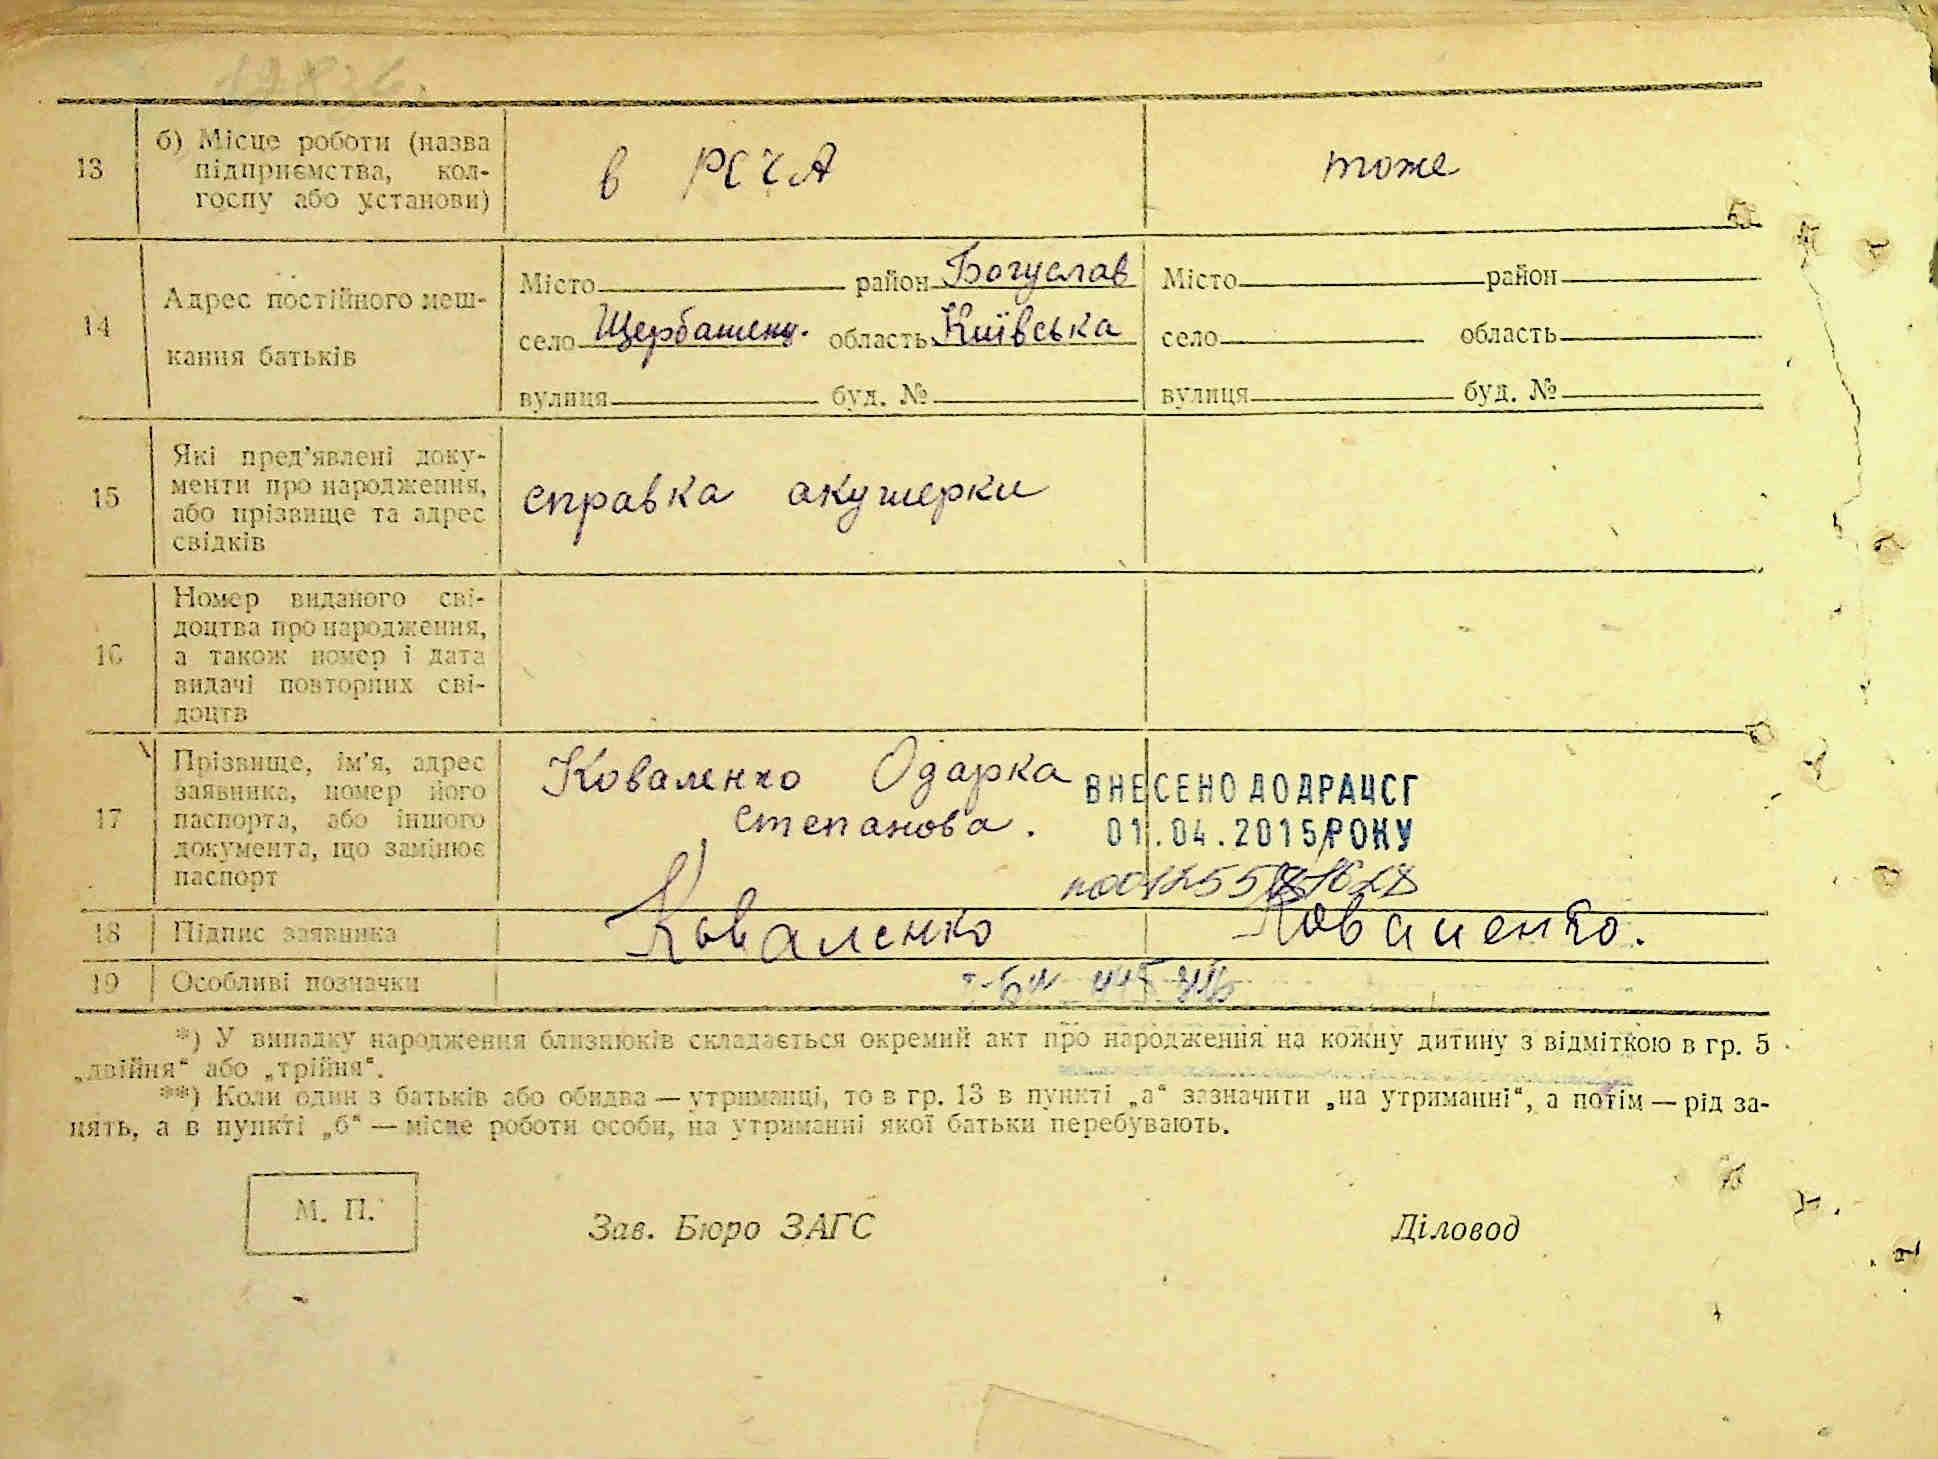 13
б) Місце роботи (назва
підприємства, кол-
госпу або установи)
в РСЧА
тоже
14
Адрес постійного меш-
кання батьків
Місто район Богуслав
село Щербашенц. область Київська
вулиця буд. №
Місто район
село область
вулиця буд. №
15
Які пред'явлені доку-
менти про народження,
або прізвище та адрес
свідків
справка акушерки
16
Номер виданого сві-
доцтва про народження,
а також номер і дата
видачі повторних сві-
доцтв
17
Прізвище, ім'я, адрес
заявника, номер його
паспорта, або іншого
документа, що замінює
паспорт
Коваленко Одарка
степанова.
ВНЕСЕНО ДО ДРАЦСГ
01.04.2015 РОКУ
18
Підпис заявника
Коваленко
Коваленко.
19
Особливі позначки
*) У випадку народження близнюків складається окремий акт про народження на кожну дитину з відміткою в гр. 5
„двійня“ або „трійня“.
**) Коли один з батьків або обидва — утриманці, то в гр. 13 в пункті „а“ зазначити „на утриманні“, а потім — рід за-
нять, а в пункті „б“ — місце роботи особи, на утриманні якої батьки перебувають.
М. П.
Зав. Бюро ЗАГС
Діловод